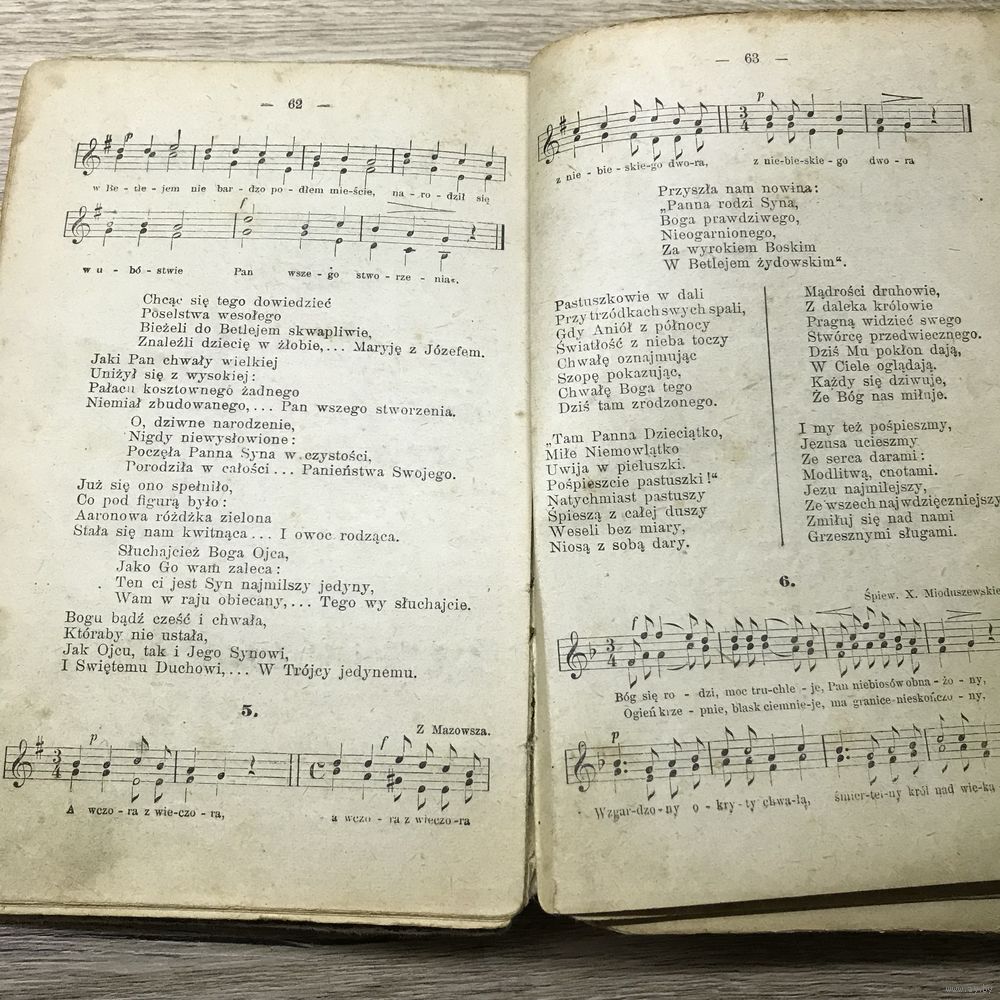 — 62 —
p
w Be - tle - jem nie bar - dzo po - dłem mie - ście, na - ro - dził się
f
w u - bó - stwie Pan wsze - go stwo - rze - nia“.
Chcąc się tego dowiedzieć
Poselstwa wesołego
Bieżeli do Betlejem skwapliwie,
Znaleźli dziecię w żłobie,... Maryję z Józefem.
Jaki Pan chwały wielkiej
Uniżył się z wysokiej:
Pałacu kosztownego żadnego
Niemiał zbudowanego,... Pan wszego stworzenia.
O, dziwne narodzenie,
Nigdy niewysłowione:
Poczęła Panna Syna w czystości,
Porodziła w całości... Panieństwa Swojego.
Już się ono spełniło,
Co pod figurą było:
Aaronowa różdżka zielona
Stała się nam kwitnąca... I owoc rodząca.
Słuchajcież Boga Ojca,
Jako Go wam zaleca:
Ten ci jest Syn najmilszy jedyny,
Wam w raju obiecany,... Tego wy słuchajcie.
Bogu bądź cześć i chwała,
Któraby nie ustała,
Jak Ojcu, tak i Jego Synowi,
I Swiętemu Duchowi,... W Trójcy jedynemu.
5.
Z Mazowsza.
p f
A wczo - ra z wie - czo - ra, a wczo - ra z wieczo - ra
— 63 —
p
z nie - bie - skie - go dwo - ra, z nie - bie - skie - go dwo - ra
Przyszła nam nowina:
„Panna rodzi Syna,
Boga prawdziwego,
Nieogarnionego,
Za wyrokiem Boskim
W Betlejem żydowskim“.
Pastuszkowie w dali
Przy trzódkach swych spali,
Gdy Aniół z północy
Światłość z nieba toczy
Chwałę oznajmując
Szopę pokazując,
Chwałę Boga tego
Dziś tam zrodzonego.
„Tam Panna Dzieciątko,
Miłe Niemowlątko
Uwija w pieluszki.
Pośpieszcie pastuszki!“
Natychmiast pastuszy
Śpieszą z całej duszy
Weseli bez miary,
Niosą z sobą dary.
Mądrości druhowie,
Z daleka królowie
Pragną widzieć swego
Stwórcę przedwiecznego.
Dziś Mu pokłon dają,
W Ciele oglądają.
Każdy się dziwuje,
Że Bóg nas miłuje.
I my też pośpieszmy,
Jezusa ucieszmy
Ze serca darami:
Modlitwą, cnotami.
Jezu najmilejszy,
Ze wszech najwdzięczniejszy
Zmiłuj się nad nami
Grzesznymi sługami.
6.
Śpiew. X. Mioduszewskie
f
Bóg się ro - dzi, moc tru - chle - je, Pan niebiosów obna - żo - ny,
Ogień krze - pnie, blask ciemnie - je, ma granice nieskończo - ny,
p
Wzgar - dzo - ny o - kry - ty chwa - łą, śmier - tel - ny król nad wie - ka